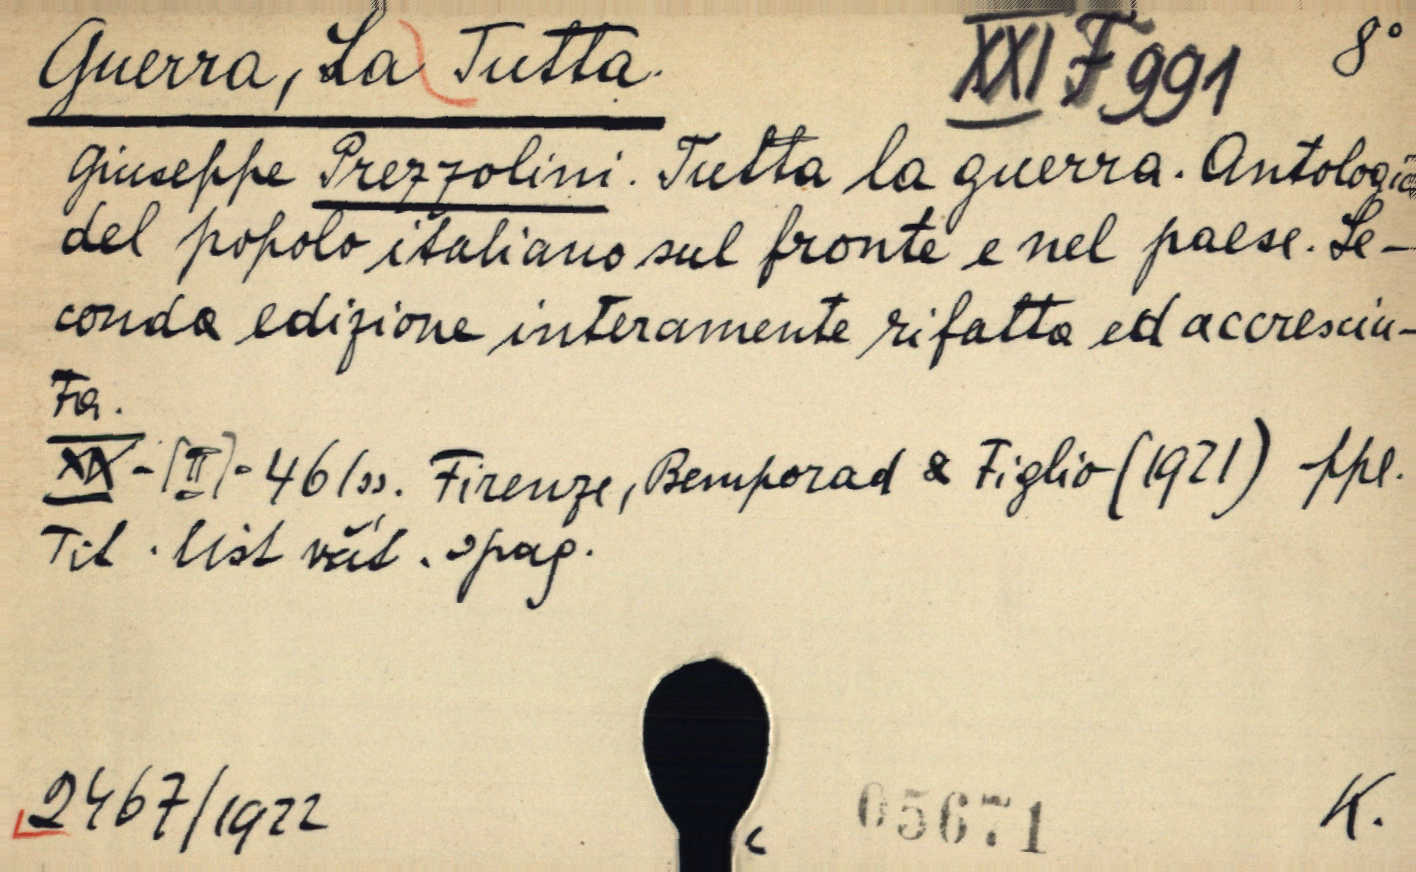 Guerra, La Tutta.
XXI F 991
8°
Giuseppe Prezzolini. Tutta la guerra. Antologia
del popolo italiano sul fronte e nel paese. Se-
conda edizione interamente rifatta ed accresciu-
ta.
XIX - [II] - 461 ss. Firenze, Bemporad & Figlio (1921) ppl.
Tit. list vát. 2 pag.
2467/1922
05671
K.